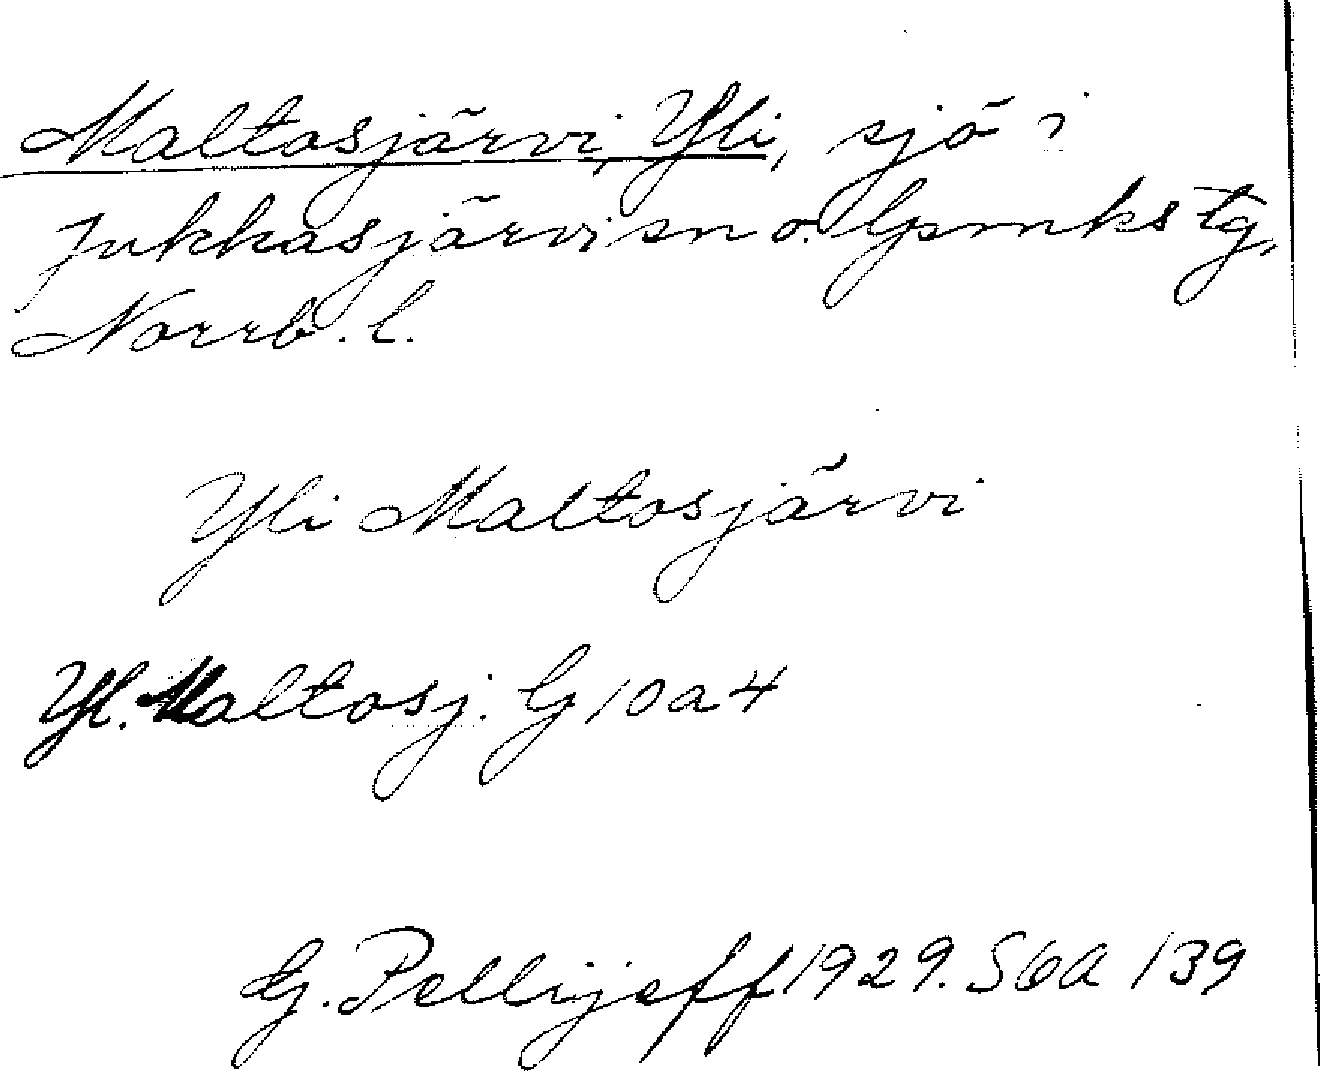 Maltosjärvi, Yli, sjö i
Jukkasjärvi sn o. Gsmks tg,
Norrb. l.
Yli Maltosjärvi
Yl. Maltosj. G 10 a 4
G. Pellijeff 1929. S6A 139